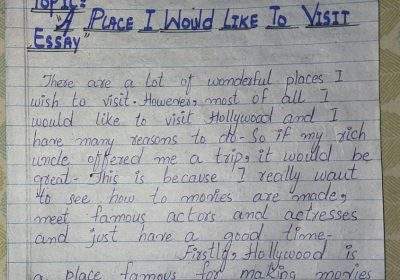 Topic:
"A PLACE I WOULD LIKE TO VISIT
ESSAY"
There are a lot of wonderful places I
wish to visit. However, most of all I
would like to visit Hollywood and I
have many reasons to do-So if my rich
uncle offered me a trip, it would be
great- This is because I really want
to see how to movies are made,
meet famous actors and actresses
and just have a good time-
Firstly, Hollywood is
a place famous for making movies